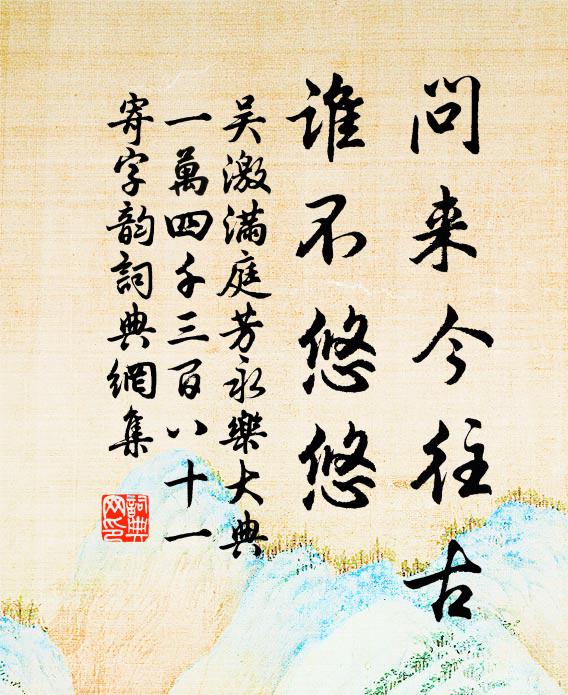 问来今往古
谁不悠悠
吴激满庭芳永乐大典
一萬四千三百八十一
寄字韵詞典網集
詞典網印